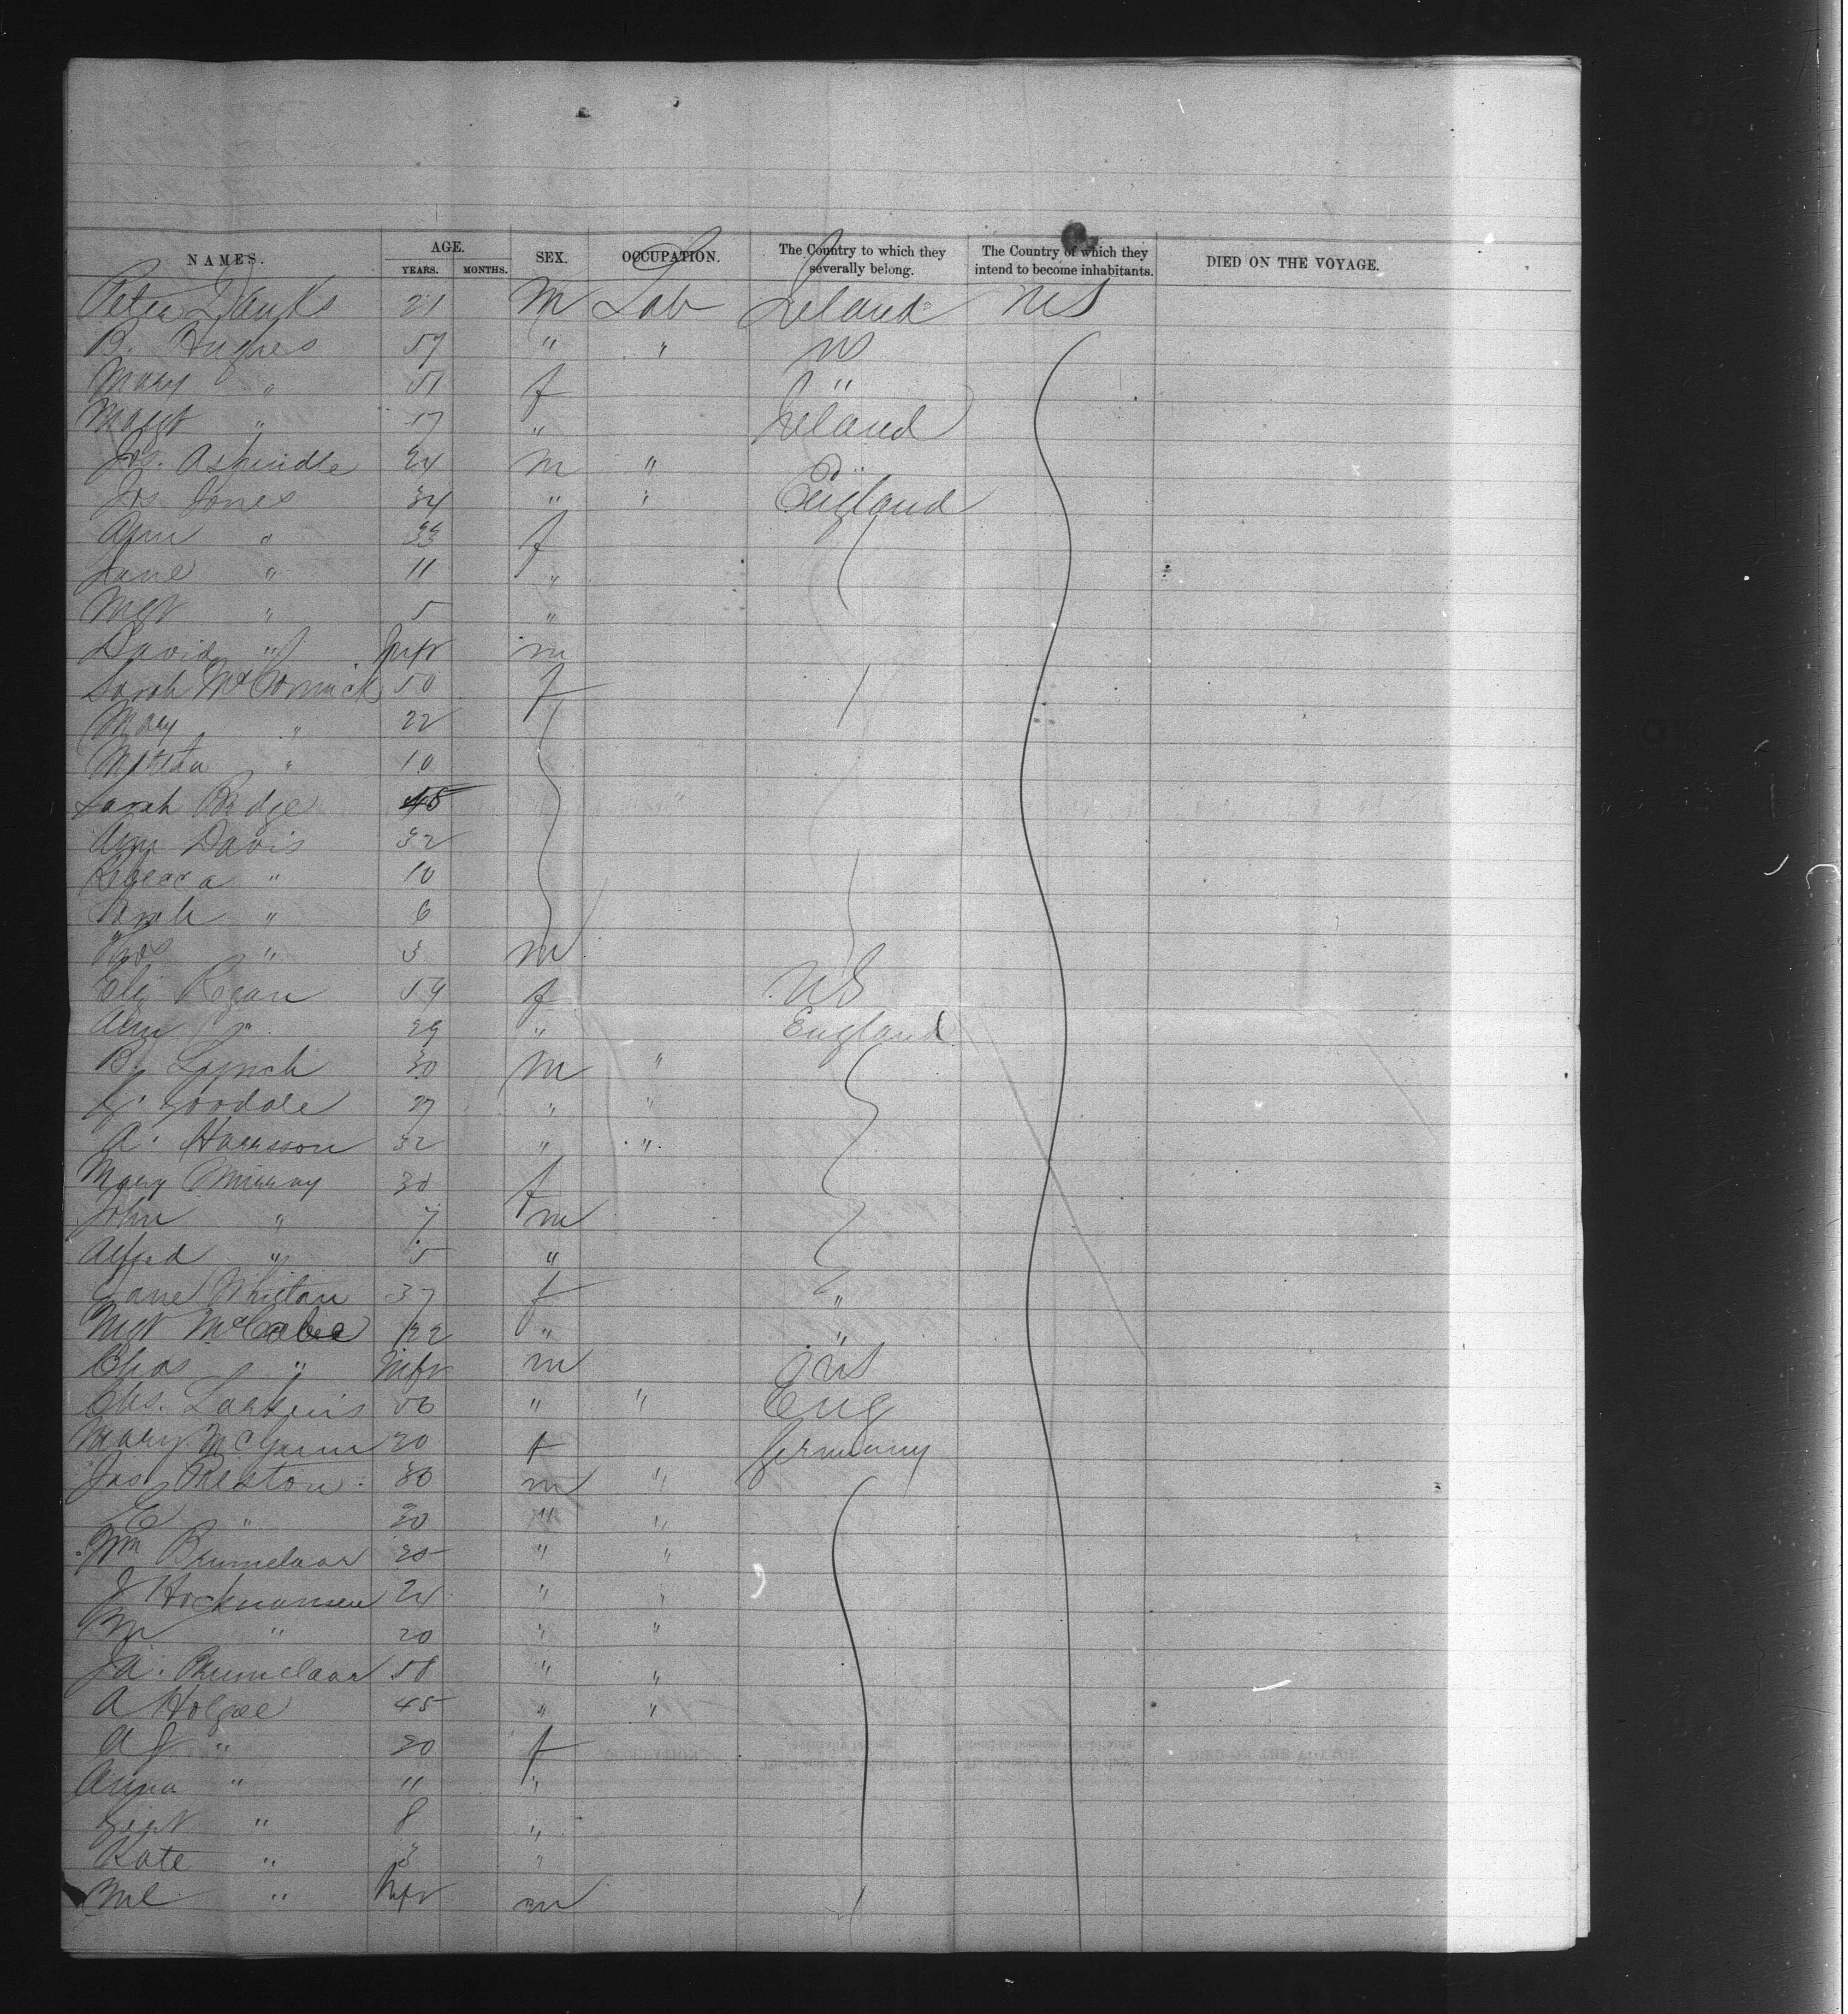 NAMES. AGE. YEARS. MONTHS. SEX. OCCUPATION. The Country to which they severally belong. The Country of which they intend to become inhabitants. DIED ON THE VOYAGE.
Peter 21 M Lab Ireland US
B. Hughes 57 " " US
Mary " 51 f "
Margt " 17 " Ireland
Jas. Aspindle 24 m " "
Jos Jones 34 " " England
Ann " 33 f
Jane " 11 "
Mgt " 5 "
David " Inft m
Sarah McCormick 50 f
Mary " 22
Matilda " 10
Sarah 45
Ann Davis 32
Rebecca " 10
Sarah " 6
Thos " 3 m
Eliz Regan 59 f US
Ann " 29 " England
B. Lynch 30 M "
Goodale 27 " "
A. Harrison 32 " "
Mary Murray 30 f
John " 7 m
Alfred " 5 "
Jane 37 f "
Mgt McCabe 22 " "
Chas " Inft m US
Chs. Larkins 50 " " Eng
Mary McGann 20 f Germany
Jas Preston 30 m "
E " 20 " "
Wm Brumelaar 25 " "
J Hockmansen 24 " "
" 20 " "
Ja. Brumelaar 58 " "
A Holgae 45 " "
A J " 30 f
Anna " 11 "
" 8 "
Kate " 3 "
" Inft m